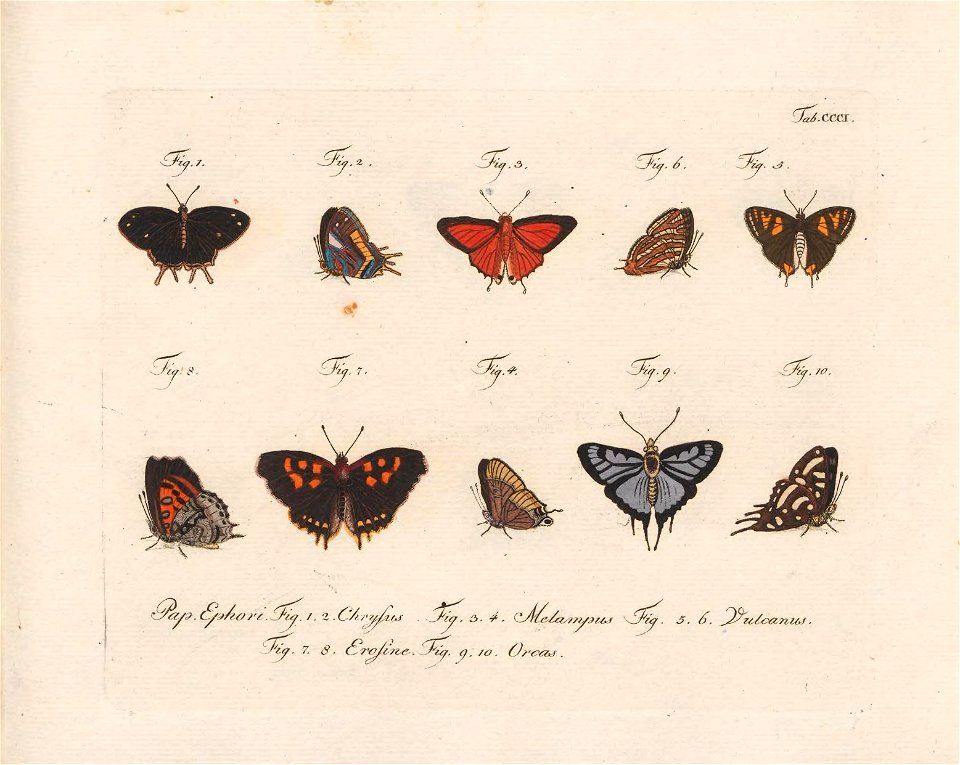 Tab. CCCI.
Fig. 1. Fig. 2. Fig. 3. Fig. 6. Fig. 5.
Fig. 8. Fig. 7. Fig. 4. Fig. 9. Fig. 10.
Pap. Ephori. Fig. 1. 2. Chryſus. Fig. 3. 4. Melampus Fig. 5. 6. Vulcanus.
Fig. 7. 8. Eroſine. Fig. 9. 10. Orcas.